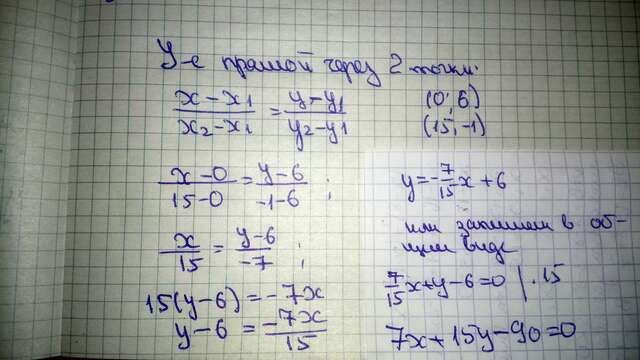 У-е прямой через 2 точки:
(x-x₁)/(x₂-x₁) = (y-y₁)/(y₂-y₁)
(0; 6)
(15; -1)
(x-0)/(15-0) = (y-6)/(-1-6) ;
x/15 = (y-6)/-7 ;
15(y-6) = -7x
y-6 = -7x/15
y = -7/15 x + 6
или запишем в об-
щем виде
7/15 x + y - 6 = 0 | · 15
7x + 15y - 90 = 0